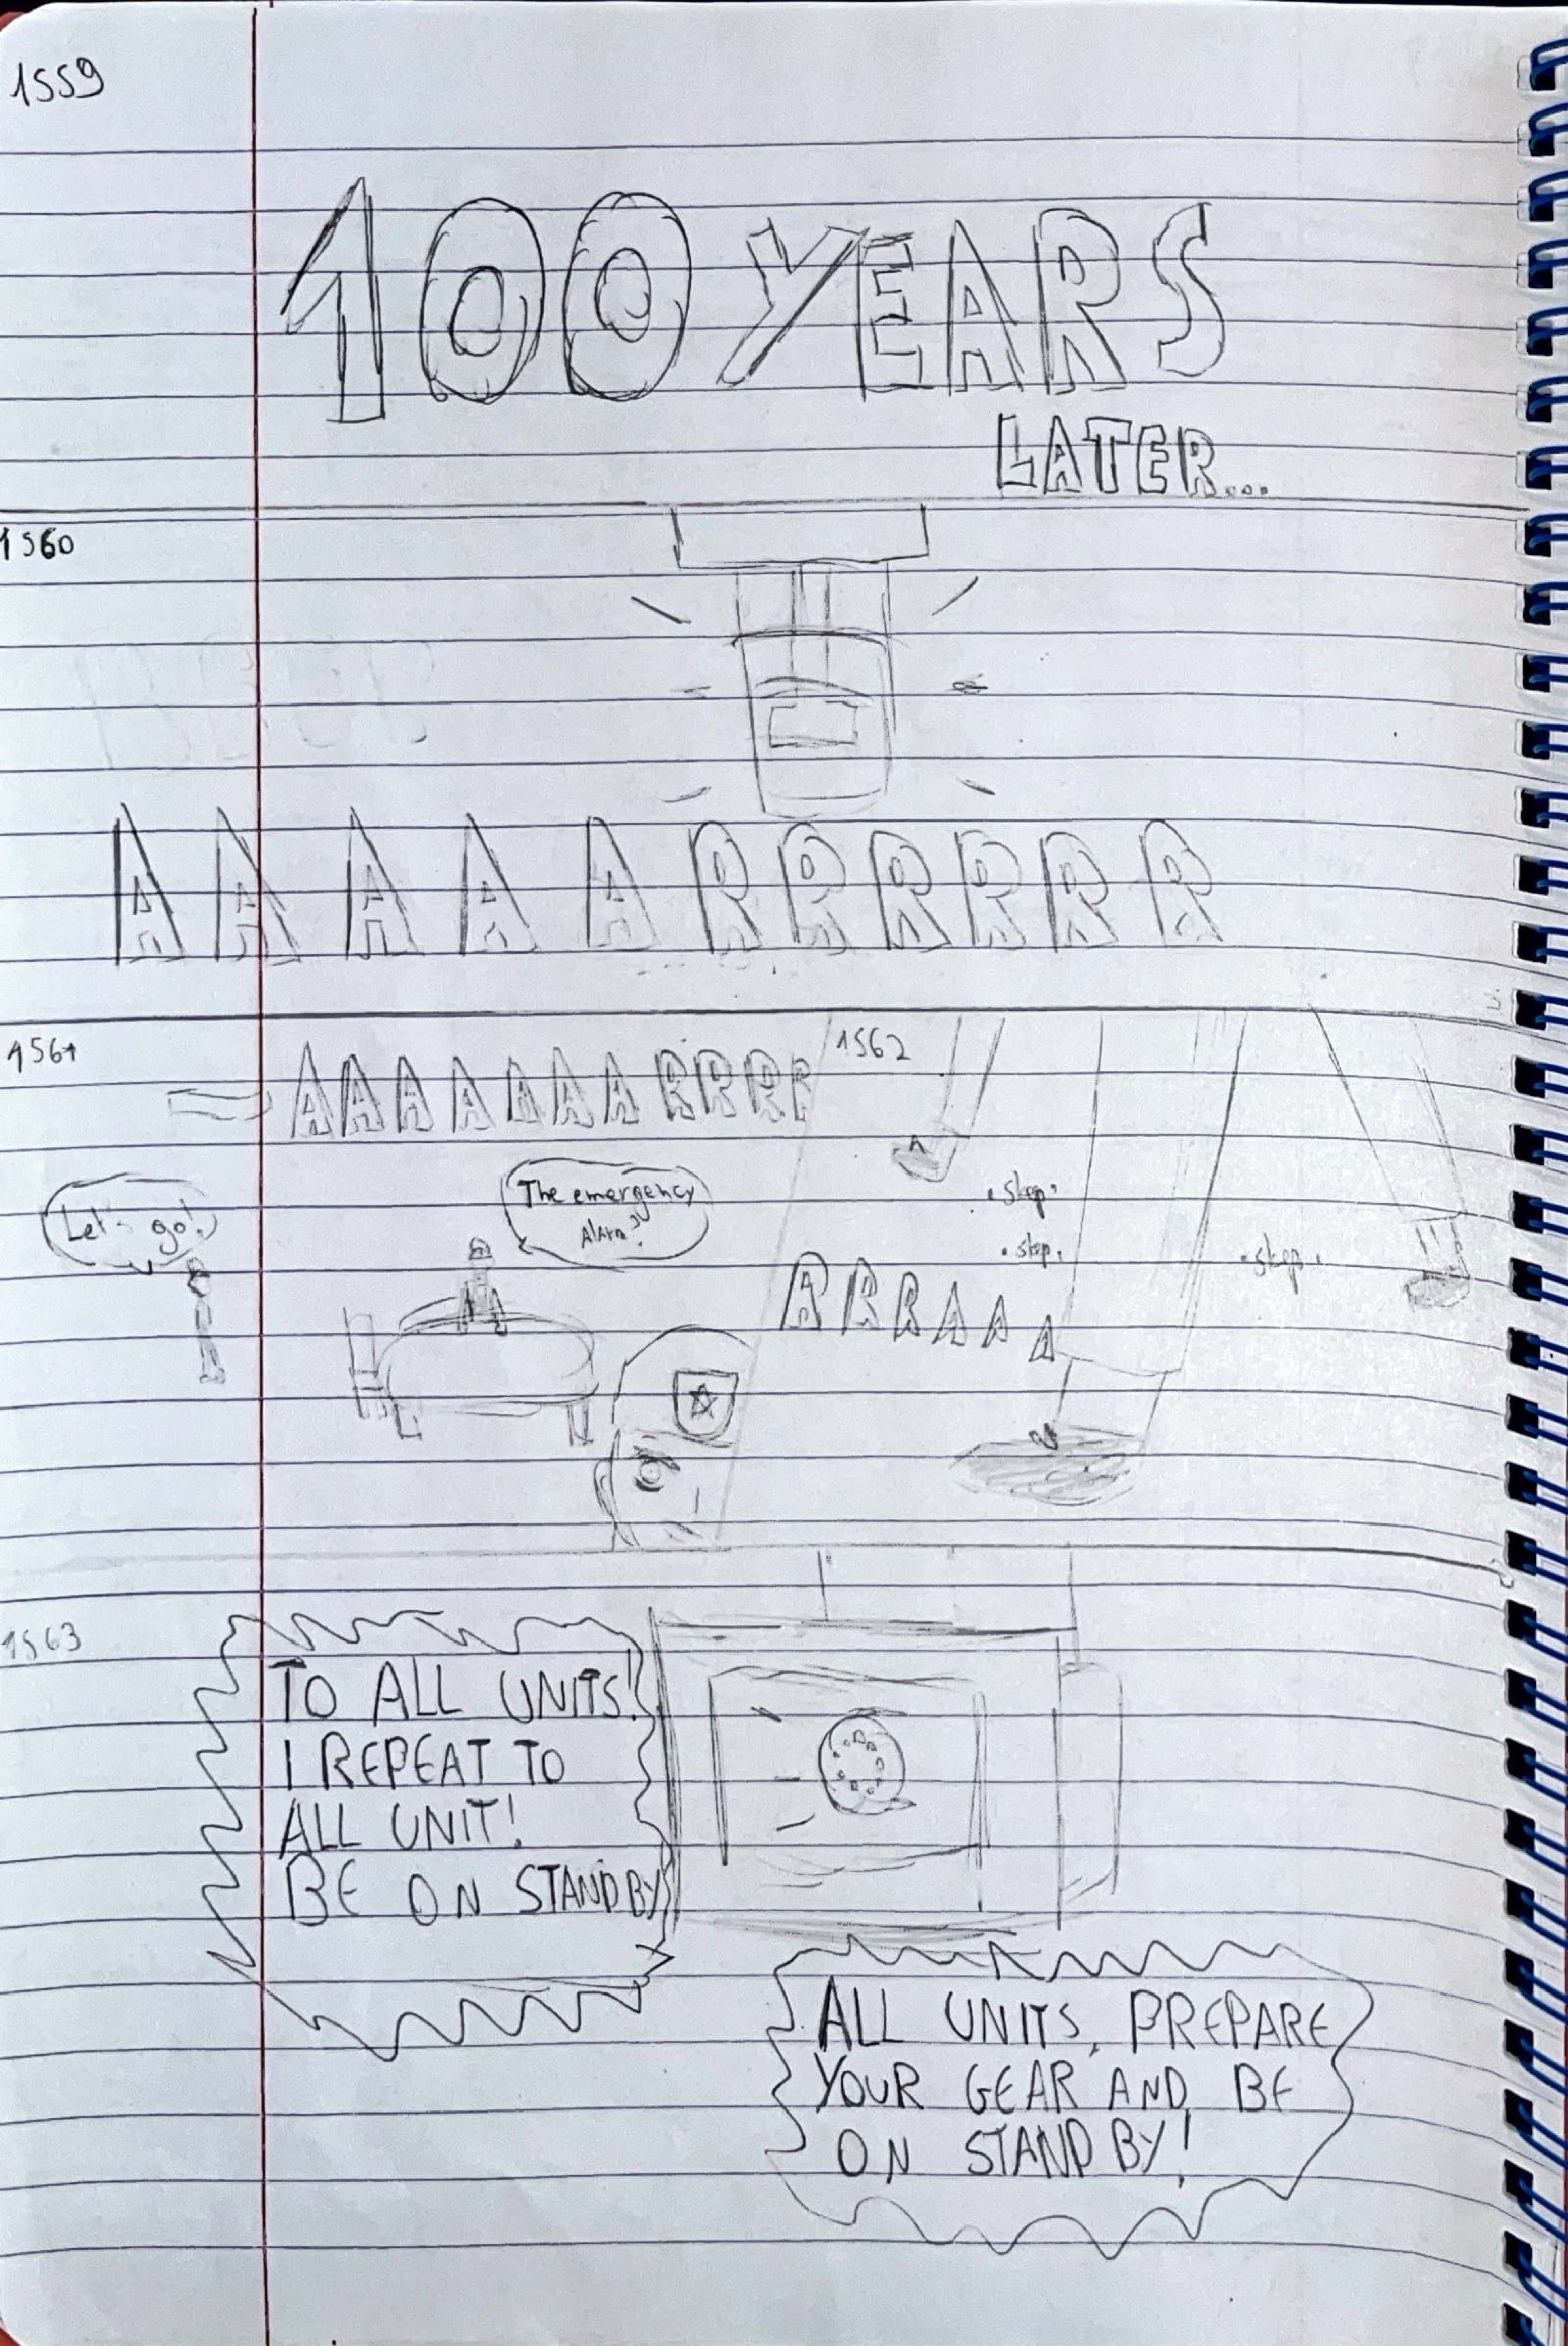 1559
100 YEARS
LATER...
1560
AAAAARRRRRR
1561
AAAAAAARRRR
Let's go!
The emergency
Alarm?
1562
.step.
.step.
.step.
RRRAAA
1563
TO ALL UNITS!
I REPEAT TO
ALL UNIT!
BE ON STANDBY
ALL UNITS, PREPARE
YOUR GEAR AND BE
ON STAND BY!